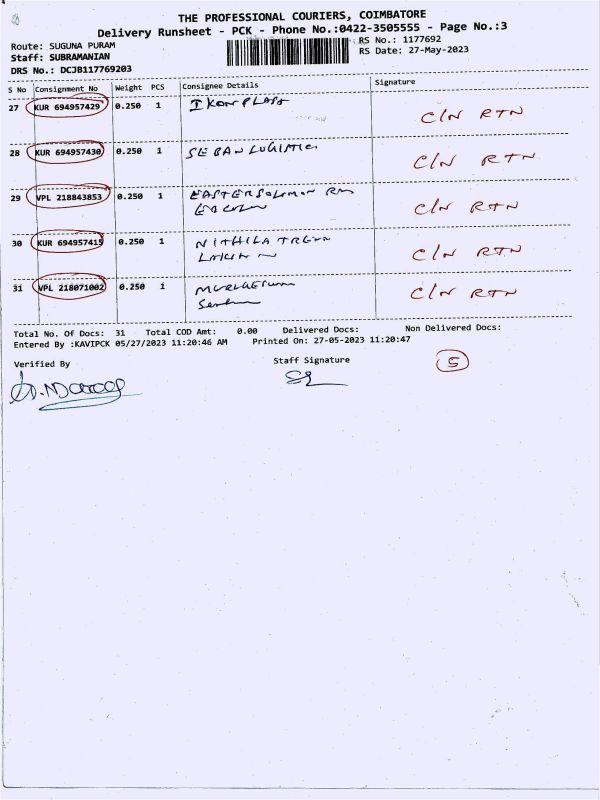 THE PROFESSIONAL COURIERS, COIMBATORE
Delivery Runsheet - PCK - Phone No.:0422-3505555 - Page No.:3
Route: SUGUNA PURAM RS No.: 1177692
Staff: SUBRAMANIAN RS Date: 27-May-2023
DRS No.: DCJB117769203
S No Consignment No Weight PCS Consignee Details Signature
27 KUR 694957429 0.250 1 IKON PLAST C/N RTN
28 KUR 694957430 0.250 1 SEBAN LOGISTIC C/N RTN
29 VPL 218843853 0.250 1 C/N RTN
30 KUR 694957415 0.250 1 NITHILA C/N RTN
31 VPL 218071002 0.250 1 C/N RTN
Total No. Of Docs: 31 Total COD Amt: 0.00 Delivered Docs: Non Delivered Docs:
Entered By :KAVIPCK 05/27/2023 11:20:46 AM Printed On: 27-05-2023 11:20:47
Verified By Staff Signature
5